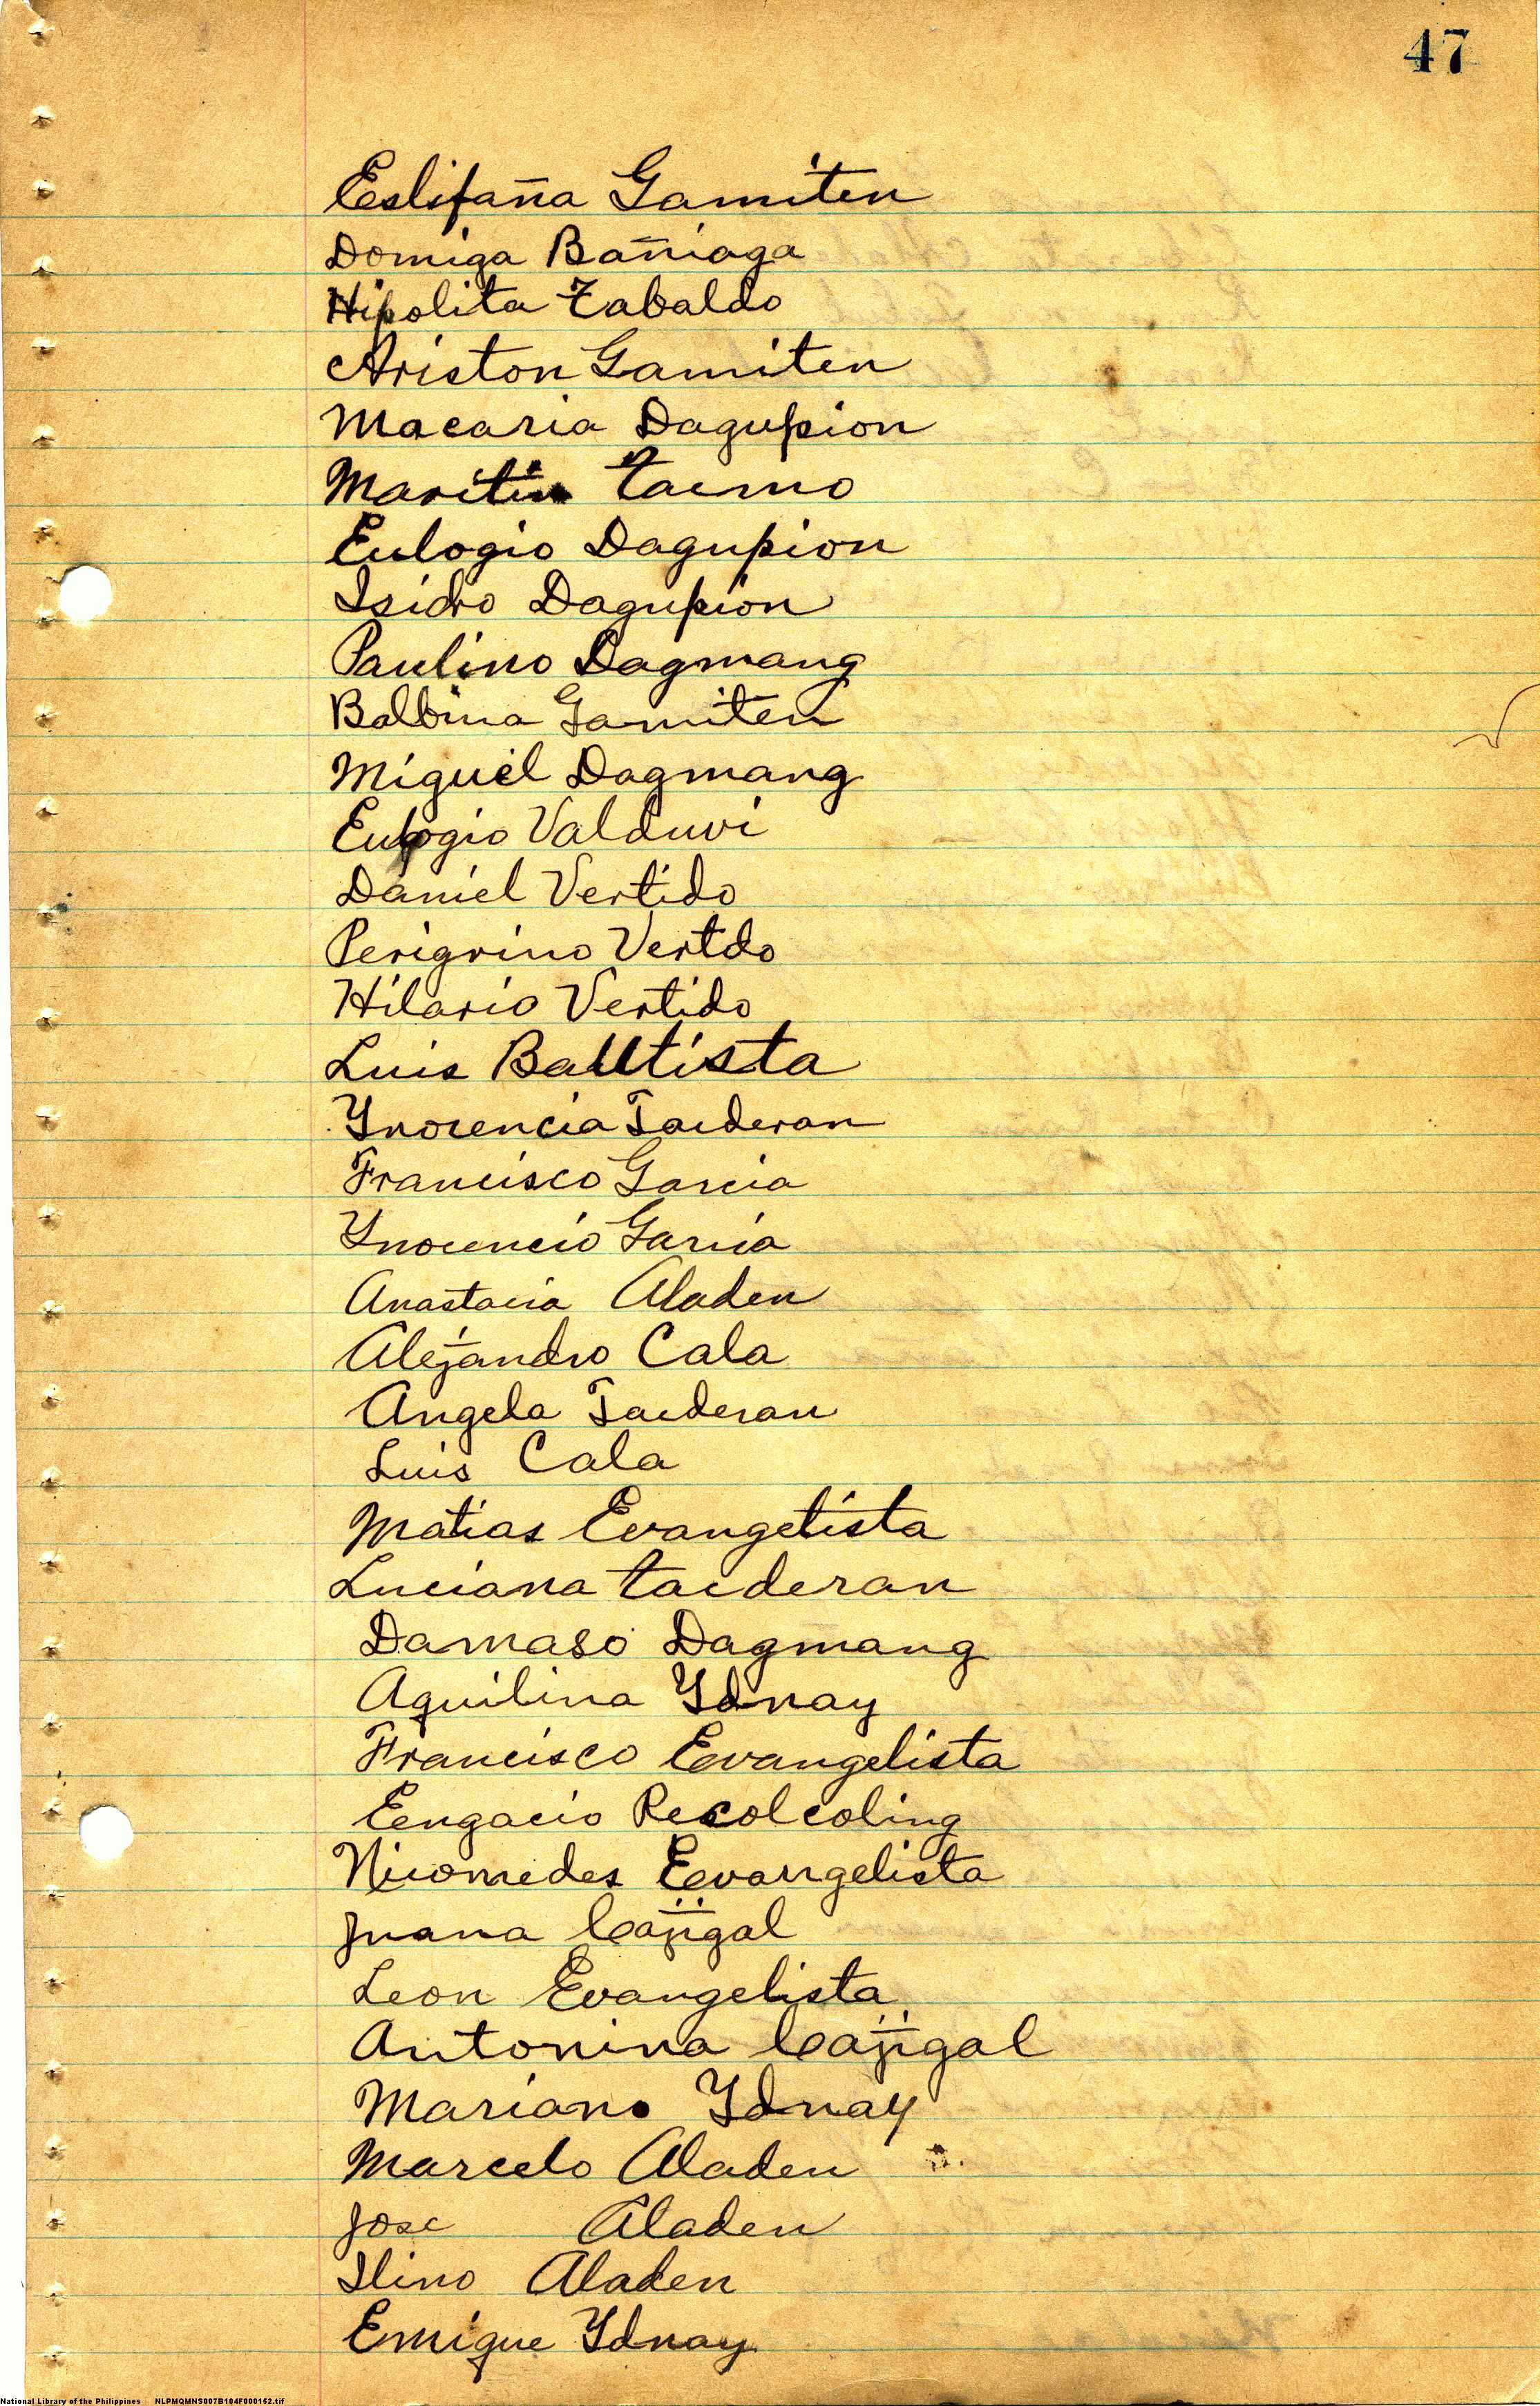 47
Eslifaña Gamiten
Domiga Bañiaga
Hipolita Tabaldo
Ariston Gamiten
Macaria Dagupion
Maritin Tacmo
Eulogio Dagupion
Isidro Dagupion
Paulino Dagmang
Balbina Gamiten
Miguel Dagmang
Eulogio Valduvi
Daniel Vertido
Perigrino Vertdo
Hilario Vertido
Luis Bautista
Ynocencia Tacderan
Francisco Garcia
Ynocencio Garcia
Anastacia Aladen
Alejandro Cala
Angela Tacderan
Luis Cala
Matias Evangelista
Luciana Tacderan
Damaso Dagmang
Aquilina Ydnay
Francisco Evangelista
Eengacio Recolcoling
Nicomedes Eevangelista
Juana Cajigal
Leon Evangelista
Antonina Cajigal
Mariano Ydnay
Marcelo Aladen
Jose Aladen
Ilino Aladen
Emique Ydnay
National Library of the Philippines NLPMQMNS007B104F000162.tif